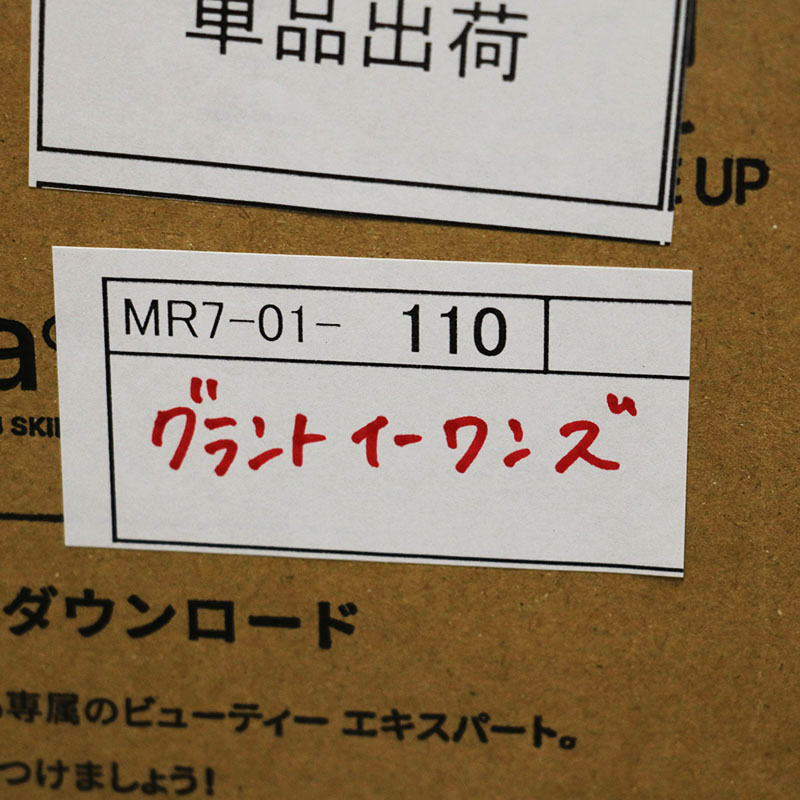 単品出荷
UP
MR7-01- 110
グラントイーワンズ
SKI
ダウンロード
専属のビューティー エキスパート。
つけましょう!